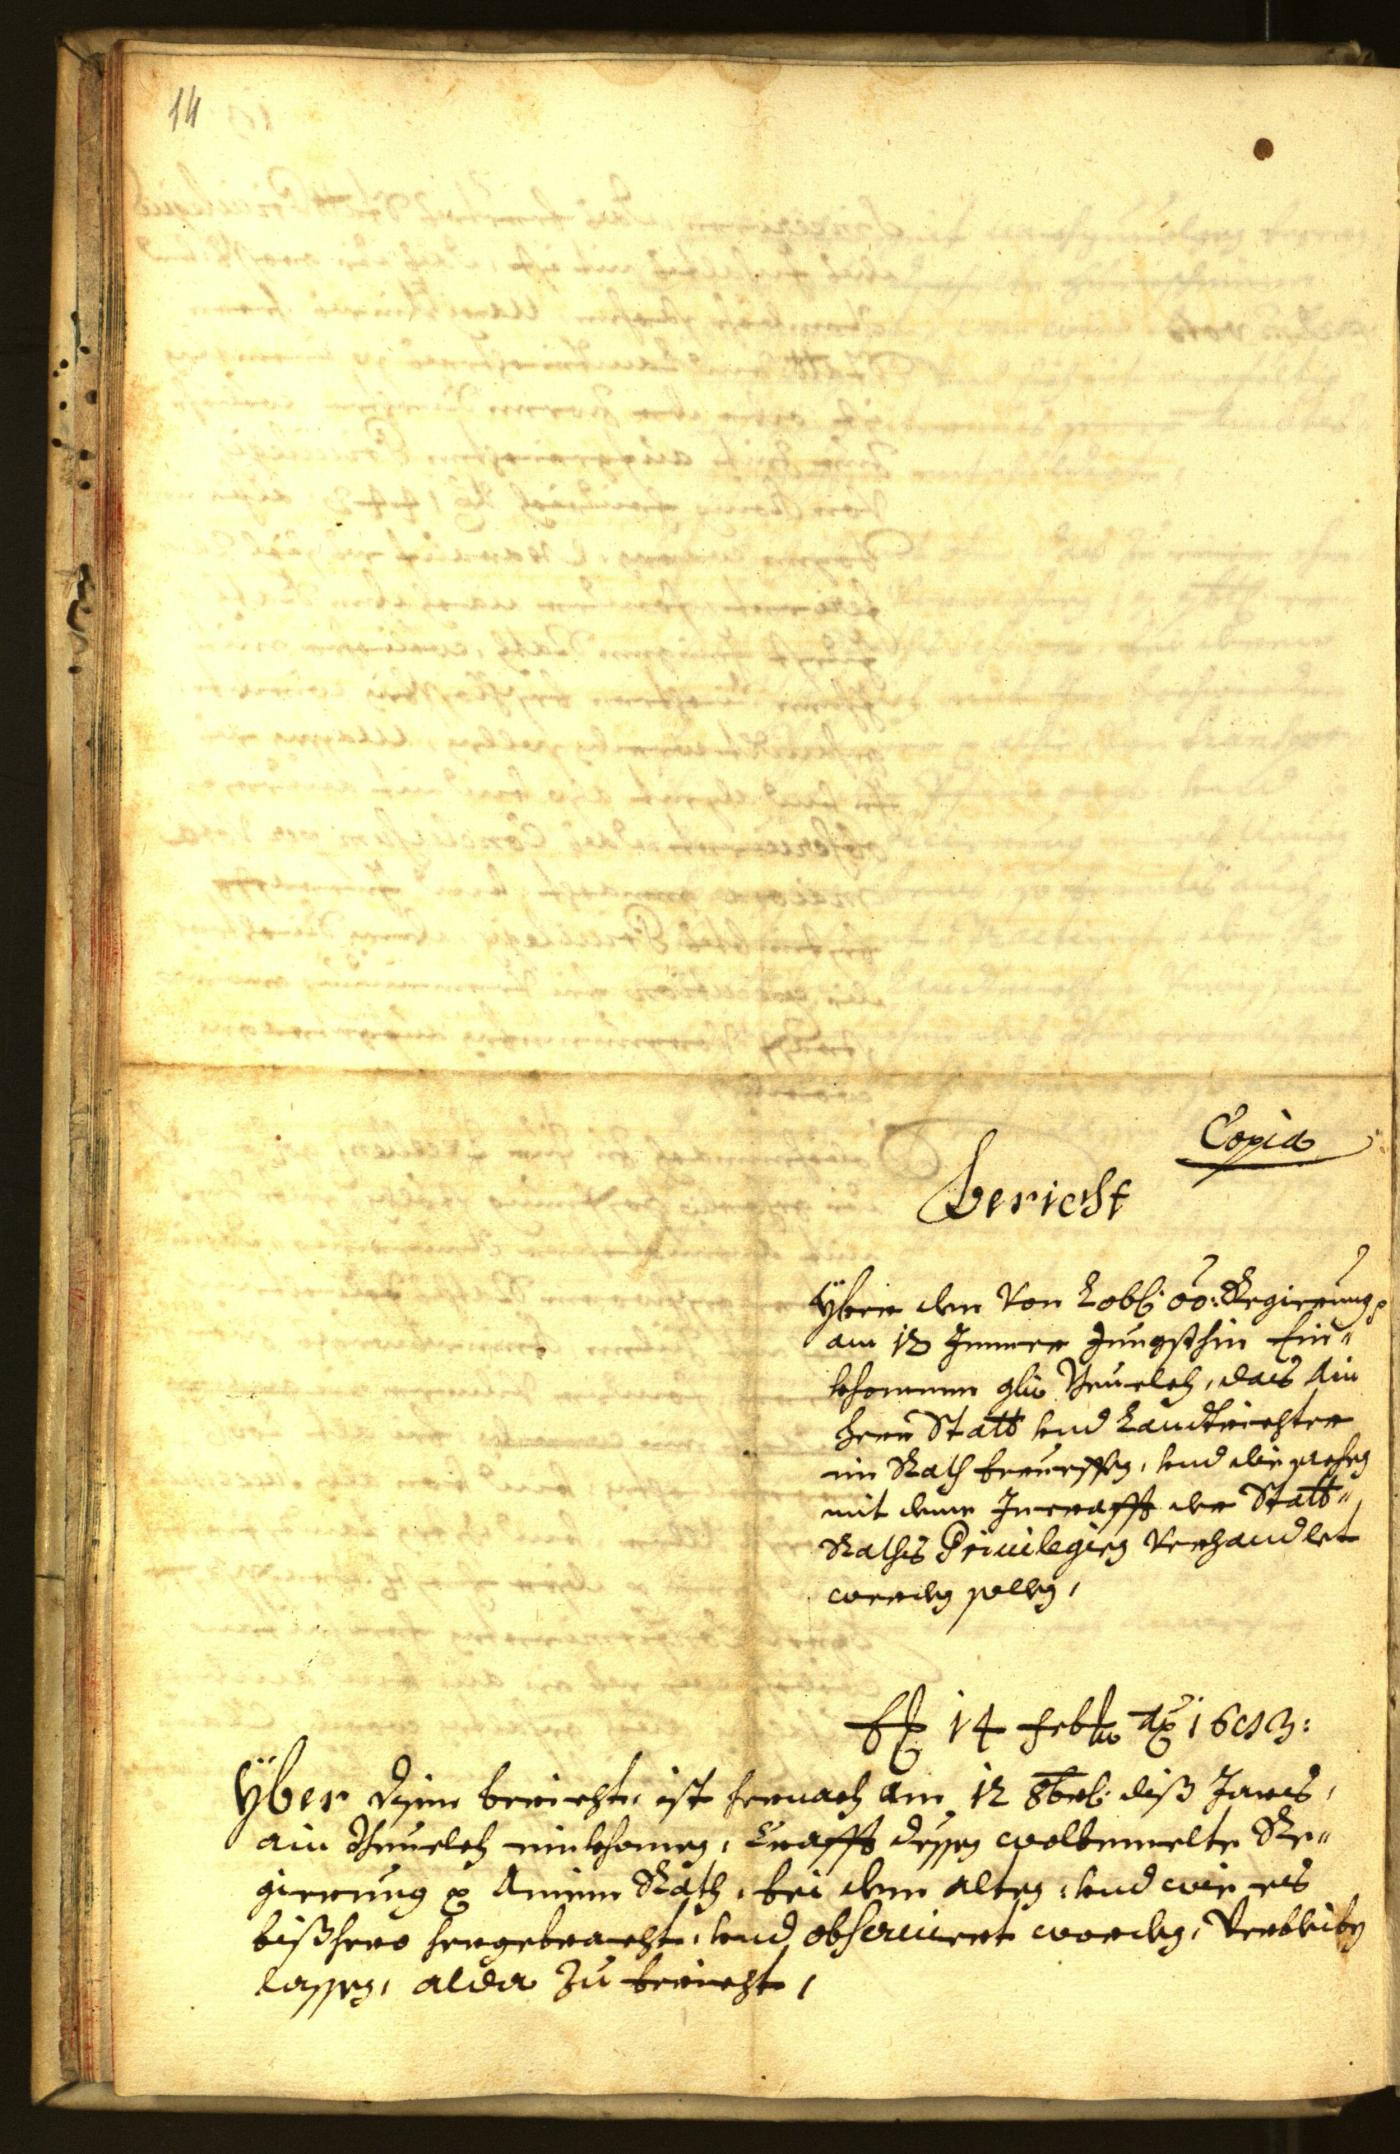 14
Copia
Bericht
Yber den von Lobl: oö: Regierung
am 12 Jenner Jüngsthin Ein"
khommen glw Beuelch, dass Ain
Herr Statt und Landtrichter
im Rath berueffen, und die sachen
mit deme Inhalt der Statt"
Raths Priuilegien verhandlet
werden sollen,
Ex 14 Febr Ao 1653:
Yber disem bericht, ist hernach am 12 8bris diss Jars,
ain Beuelch einkhomen, Crafft dessen wolbemelte Re"
gierung Ainem Rath, bei dem alten, und wie es
bisshero hergebracht, und obseruiert worden, Verbleiben
lassen, alda zu bericht,